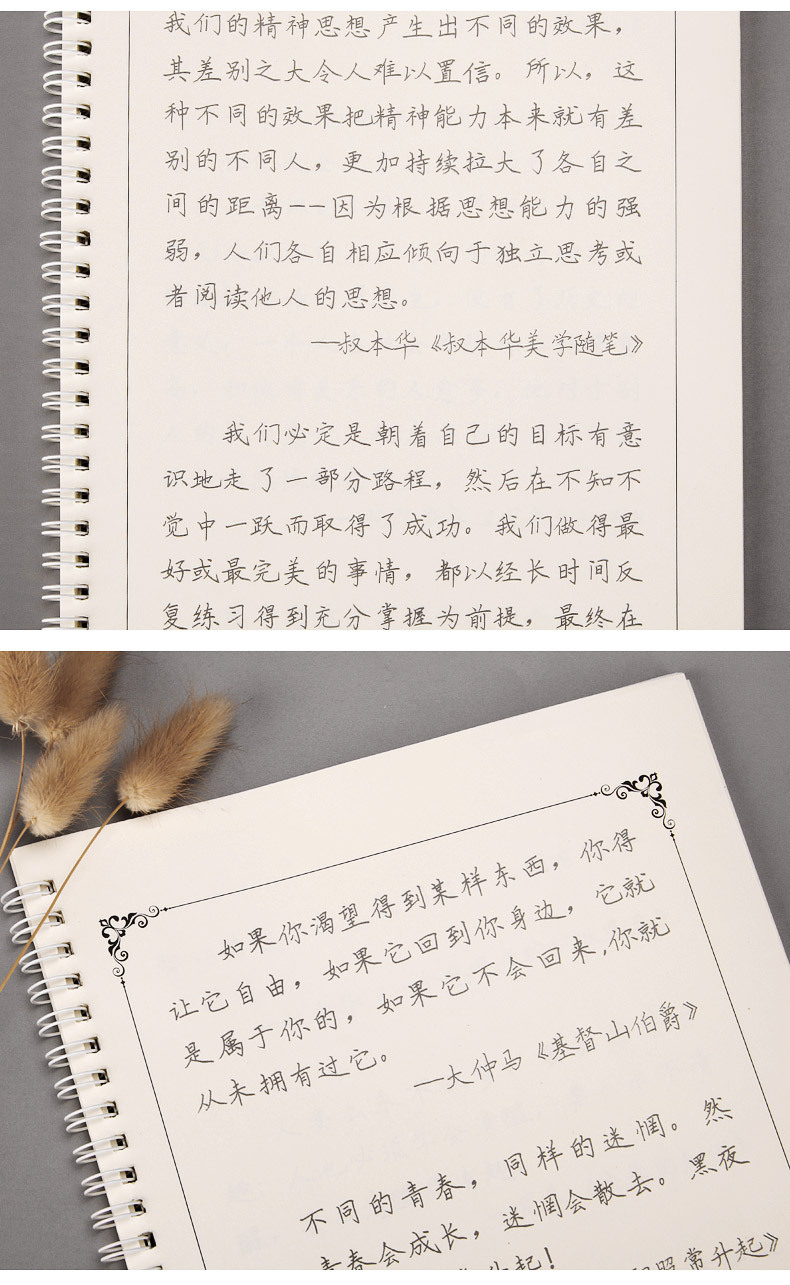 我们的精神思想产生出不同的效果，
其差别之大令人难以置信。所以，这
种不同的效果把精神能力本来就有差
别的不同人，更加持续拉大了各自之
间的距离--因为根据思想能力的强
弱，人们各自相应倾向于独立思考或
者阅读他人的思想。
—叔本华《叔本华美学随笔》
我们必定是朝着自己的目标有意
识地走了一部分路程，然后在不知不
觉中一跃而取得了成功。我们做得最
好或最完美的事情，都以经长时间反
复练习得到充分掌握为前提，最终在
如果你渴望得到某样东西，你得
让它自由，如果它回到你身边，它就
是属于你的，如果它不会回来，你就
从未拥有过它。
—大仲马《基督山伯爵》
不同的青春，同样的迷惘。然
青春会成长，迷惘会散去。黑夜
起！
照常升起》